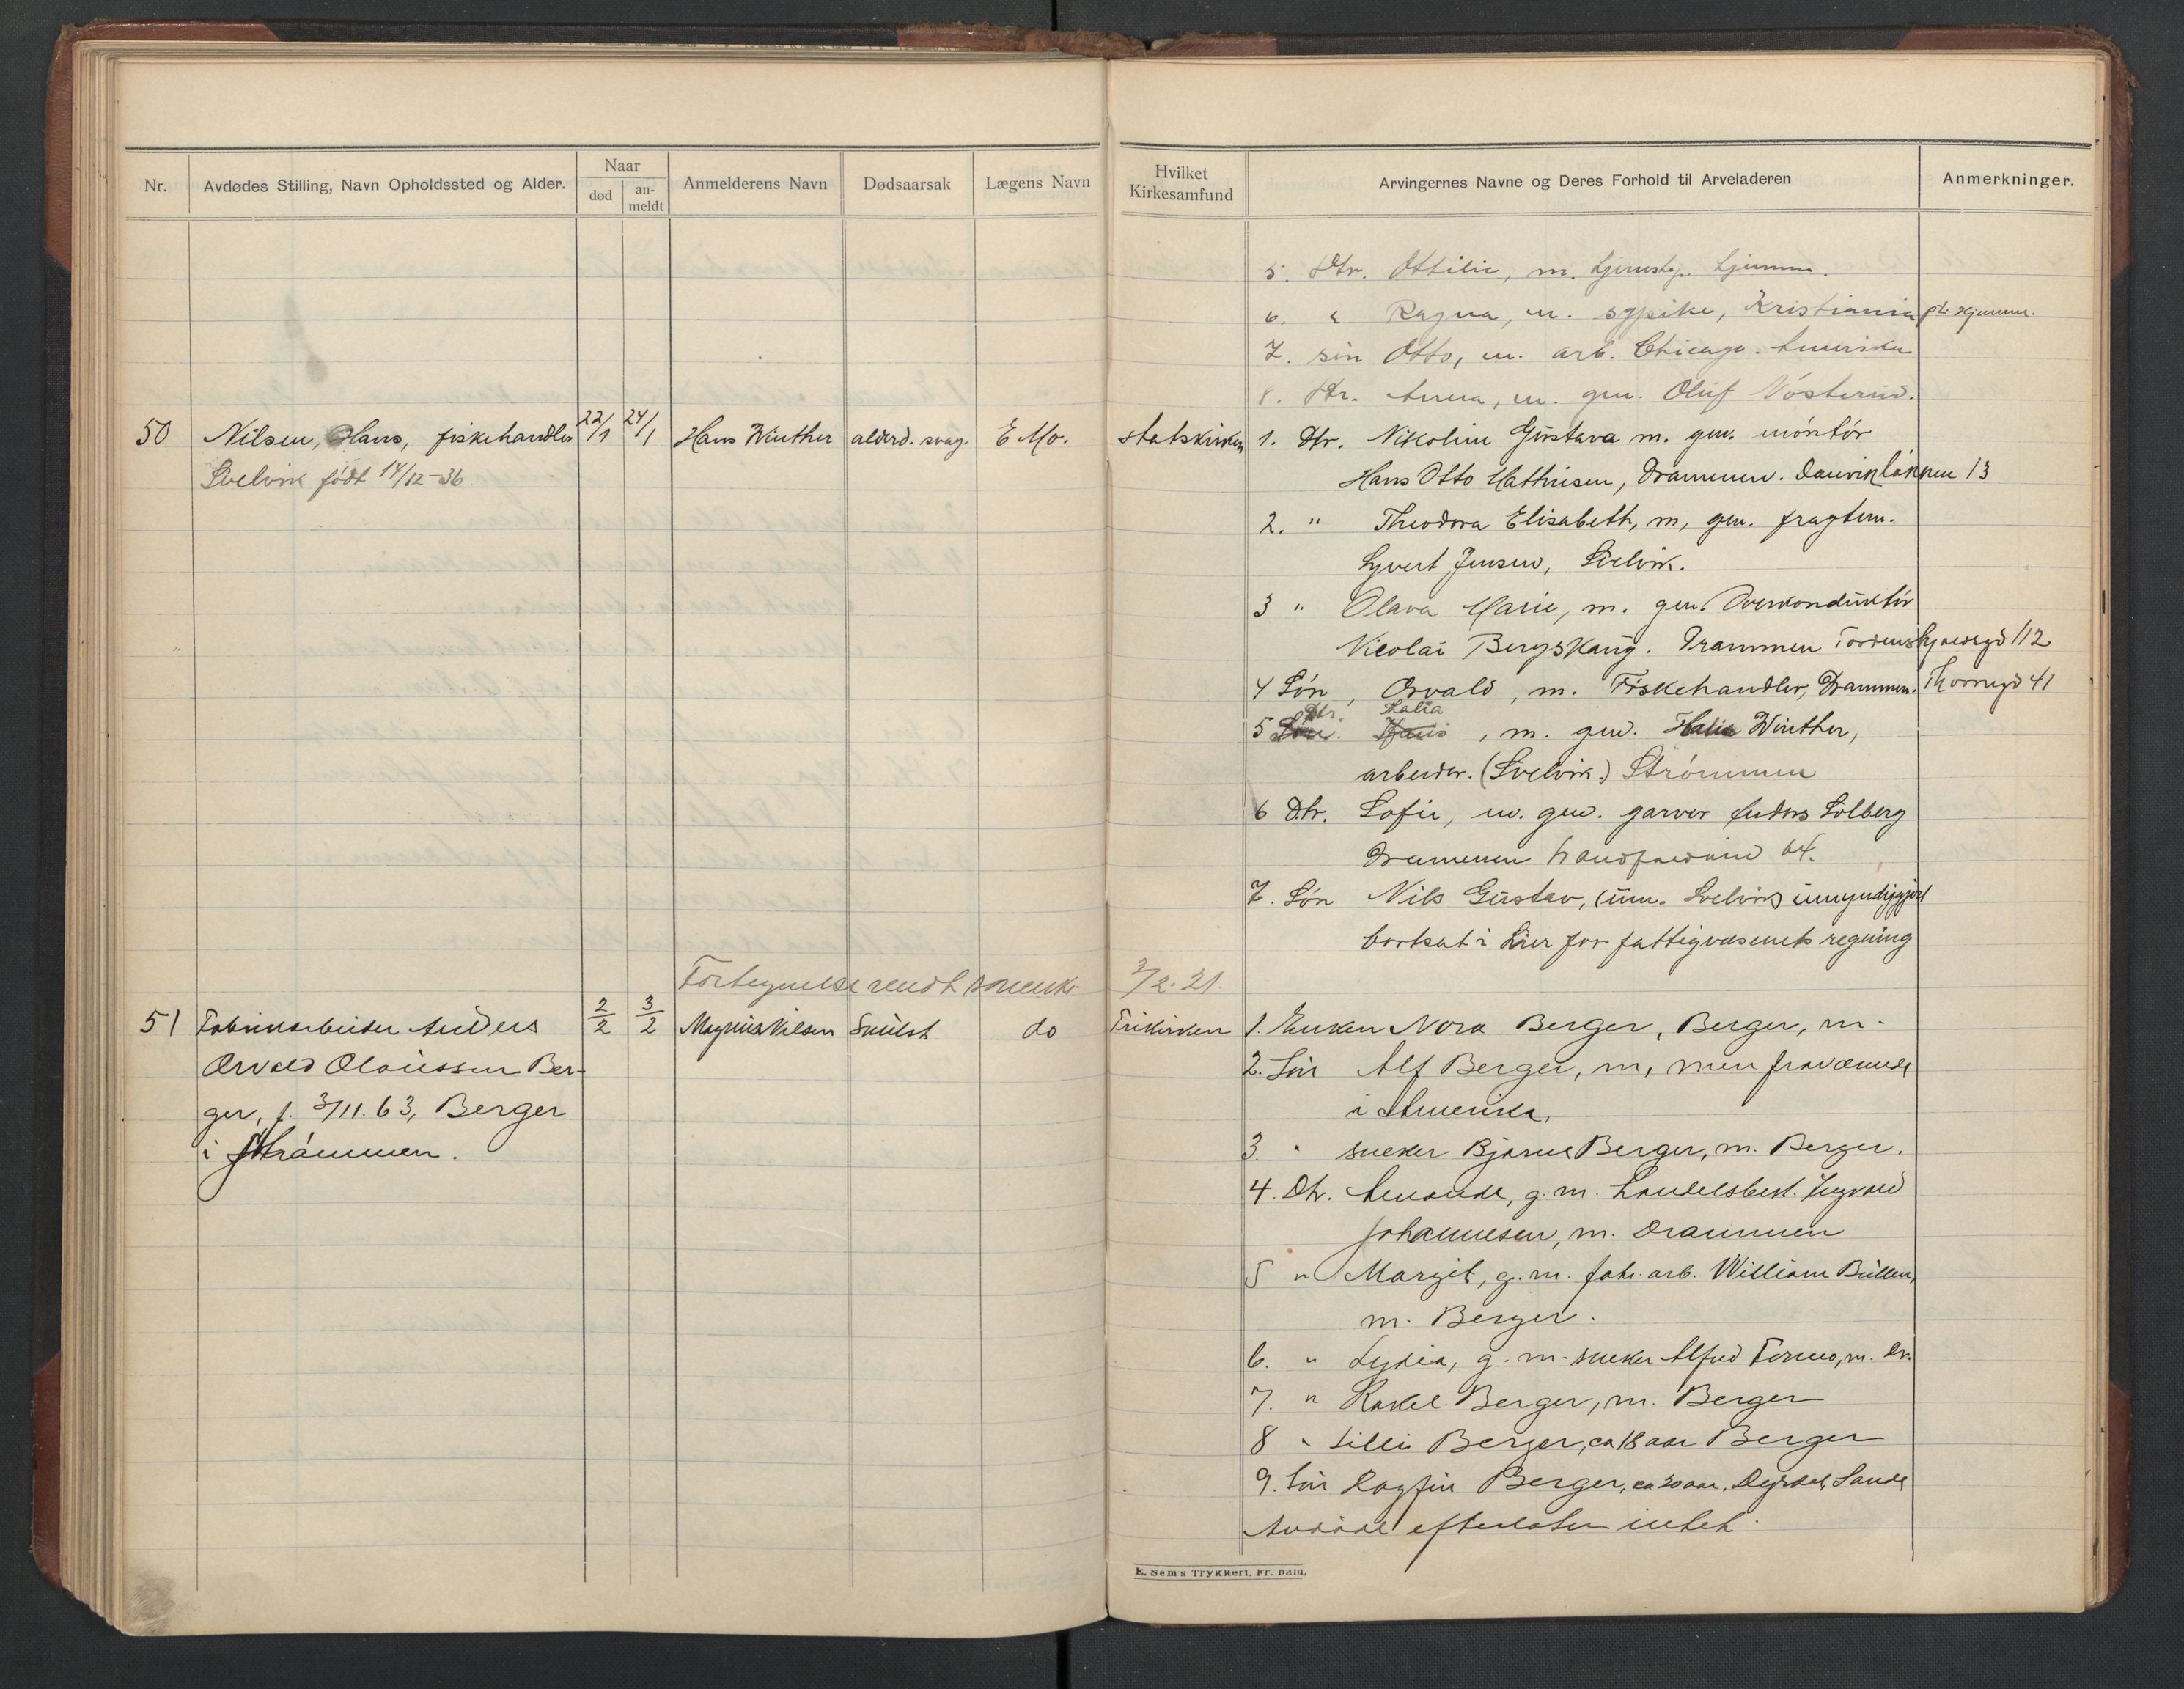 Nr.
Avdødes Stilling, Navn Opholdssted og Alder.
Naar
død
an-
meldt
Anmelderens Navn
Dødsaarsak
Lægens Navn
Hvilket
Kirkesamfund
Arvingernes Navne og Deres Forhold til Arveladeren
Anmerkninger.
5. Dtr. Ottilie, m. hjemme.
6. " Ragna, m. sypike, Kristiania pt. hjemme.
7. søn Otto, m. arb. Chicago. Amerika
8. Dtr. Anna, m. gm. Oluf
50 Nilsen, Hans, fiskehandler 22/1 24/1 Hans Winther alderd. svag. E Mo. statskirken 1. Dtr. Nikoline Gustava m. gm. montør
Svelvik født 14/12-36
Hans Otto Mathisen, Drammen. Danvikløkken 13
2. " Theodora Elisabeth, m, gm. fragtem.
Syvert Jensen, Svelvik.
3 " Olava Marie, m. gm. Overkonduktør
Nicolai Bergskaug. Drammen Tordenskjoldsgd 112
4 Søn, Osvald, m. Fiskehandler, Drammen. Thornegd 41
Dtr. Thalia
5 Søn. Hans, m. gm. Winther,
arbeider. (Svelvik.) Strømmen
6 Dtr. Sofie, m. gm. garver Anders Solberg
Drammen 64.
7. Søn Nils Gustav, (um. Svelvik) umyndiggjort
bortsat i Lier for fattigvæsenets regning
Fortegnelse sendt 3/2. 21.
51 Fabrikarbeider Anders 2/2 3/2 Magnus Nilsen Svulst do Frikirken 1. Enken Nora Berger, Berger, m.
Osvald Olaussen Ber-
ger, f. 3/11. 63, Berger
i Strømmen.
2. Søn Alf Berger, m, men fraværende
i Amerika.
3. " snekker Bjarne Berger, m. Berger.
4. Dtr. Amanda, g. m. handelsbest. Ingvald
Johannesen, m. Drammen
5 " Margit, g. m. fabr. arb. William Bullen,
m. Berger.
6. " Lydia, g. m. snekker Alfred Formo, m. Dr.
7. " Rakel Berger, m. Berger
8 " Lilli Berger, ca 18 aar Berger
9. Søn Dagfin Berger, ca 20 aar, Sande
Avdøde efterlater intet.
E. Sems Trykkeri, Fr. hald.